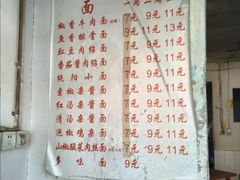 面 一两 二两 三两
椒香牛肉面 7元 9元 11元
鱼香排骨面 9元 11元 13元
豇豆肉绍面 7元 9元 11元
香菇酱肉面 7元 9元 11元
纯阳小面 7元 9元 11元
素椒杂酱面 7元 9元 11元
红汤杂酱面 7元 9元 11元
清汤杂酱面 7元 9元 11元
泡椒鸡杂面 7元 9元 11元
山椒酸菜肉丝面 7元 9元 11元
味面 9元